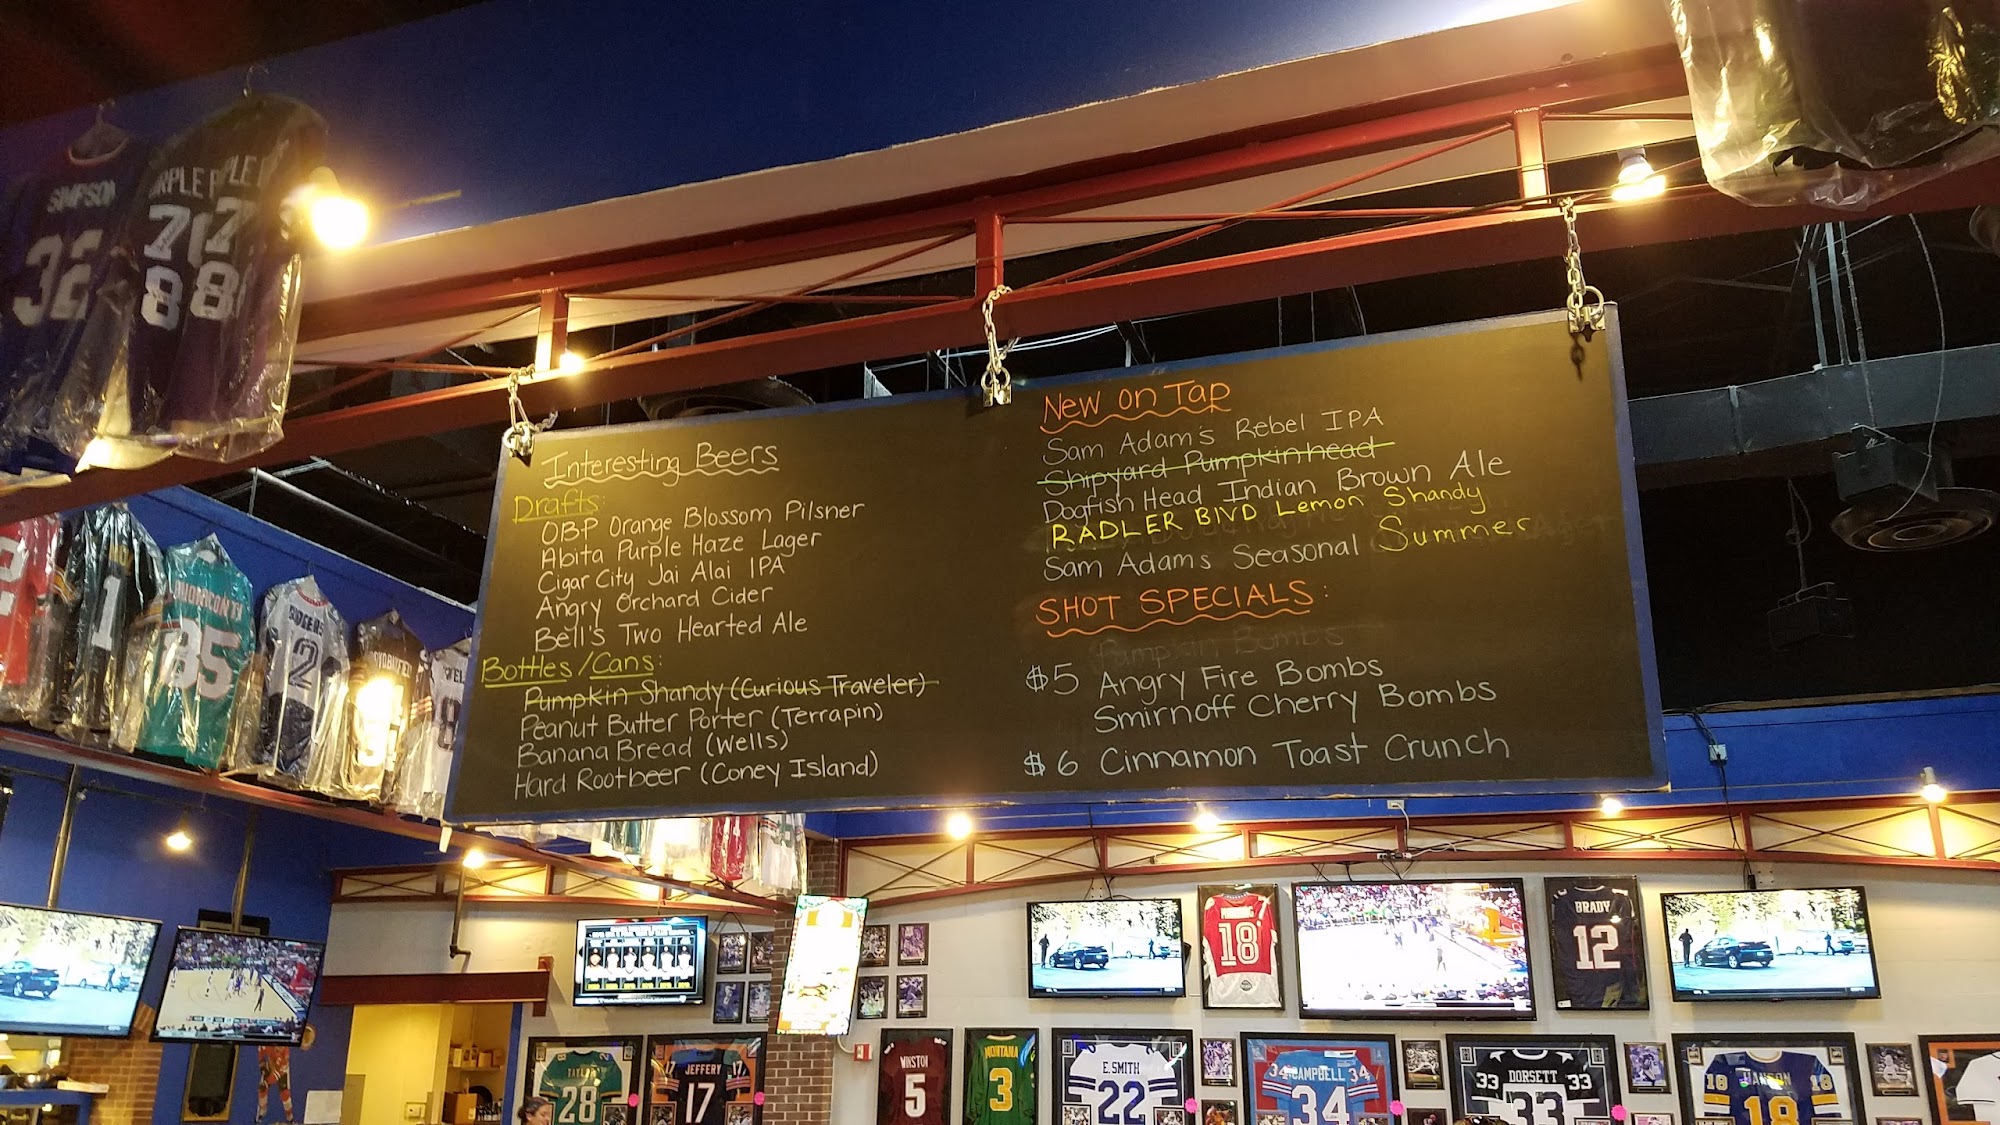 Interesting Beers
Drafts:
OBP Orange Blossom Pilsner
Abita Purple Haze Lager
Cigar City Jai Alai IPA
Angry Orchard Cider
Bell's Two Hearted Ale
Bottles/Cans:
Pumpkin Shandy (Curious Traveler)
Peanut Butter Porter (Terrapin)
Banana Bread (Wells)
Hard Rootbeer (Coney Island)
New on Tap
Sam Adam's Rebel IPA
Shipyard Pumpkinhead
Dogfish Head Indian Brown Ale
RADLER BLVD Lemon Shandy
Sam Adams Seasonal Summer
SHOT SPECIALS:
Pumpkin Bombs
$5 Angry Fire Bombs
Smirnoff Cherry Bombs
$6 Cinnamon Toast Crunch
SIMPSON
32
PURPLE
78
78
1
85
2
18
BRADY
12
28
JEFFERY
17
WINSTON
5
MONTANA
3
E.SMITH
22
34 CAMPBELL 34
34
33 DORSETT 33
33
18 18
18